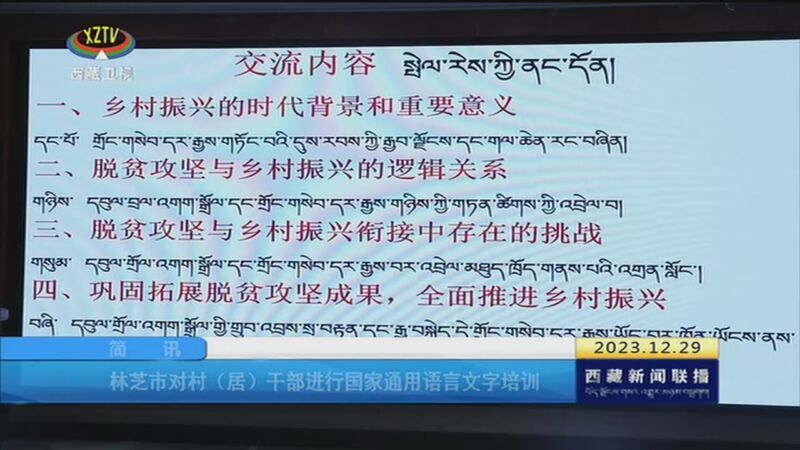 XZTV
西藏卫视
交流内容 སྤེལ་རེས་ཀྱི་ནང་དོན།
一、乡村振兴的时代背景和重要意义
དང་པོ་ གྲོང་གསེབ་དར་རྒྱས་གཏོང་བའི་དུས་རབས་ཀྱི་རྒྱབ་ལྗོངས་དང་གལ་ཆེན་རང་བཞིན།
二、脱贫攻坚与乡村振兴的逻辑关系
གཉིས་ དབུལ་སྒྲོལ་འགག་སྒྲོལ་དང་གྲོང་གསེབ་དར་རྒྱས་གཉིས་ཀྱི་གཏན་ཚིགས་ཀྱི་འབྲེལ་བ།
三、脱贫攻坚与乡村振兴衔接中存在的挑战
གསུམ་ དབུལ་གྲོལ་འགག་སྒྲོལ་དང་གྲོང་གསེབ་དར་རྒྱས་བར་འབྲེལ་མཐུད་ཁྲོད་གནས་པའི་འགྲན་སློང་།
四、巩固拓展脱贫攻坚成果，全面推进乡村振兴
བཞི་ དབུལ་གྲོལ་འགག་སྒྲོལ་གྱི་གྲུབ་འབྲས་སྲ་བརྟན་དང་རྒྱ་བསྐྱེད་དེ་གྲོང་གསེབ་དར་རྒྱས་ཡོང་བར་
简 讯
林芝市对村（居）干部进行国家通用语言文字培训
2023.12.29
西藏新闻联播
བོད་ལྗོངས་གསར་འགྱུར་མཉམ་བསྒྲགས།